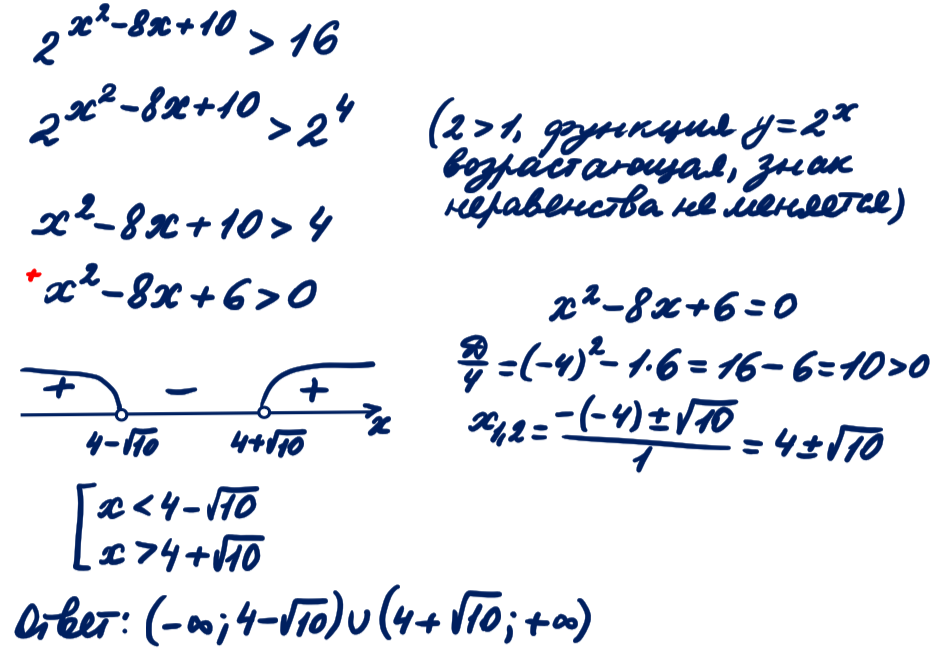 2^{x²-8x+10} > 16
2^{x²-8x+10} > 2⁴
(2>1, функция y=2^x
возрастающая, знак
неравенства не меняется)
x²-8x+10 > 4
+ x²-8x+6 > 0
x²-8x+6=0
D/4 = (-4)² - 1·6 = 16-6 = 10 > 0
x₁,₂ = (-(-4)±√10)/1 = 4±√10
+ − +
4-√10 4+√10 x
[ x < 4-√10
x > 4+√10
Ответ: (-∞; 4-√10) ∪ (4+√10; +∞)